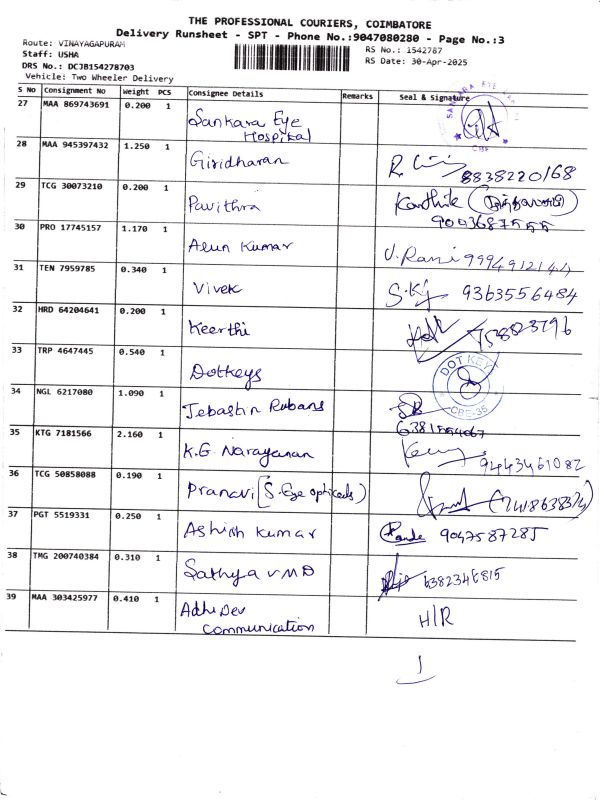 THE PROFESSIONAL COURIERS, COIMBATORE
Delivery Runsheet - SPT - Phone No.:9047080280 - Page No.:3
Route: VINAYAGAPURAM
RS No.: 1542787
Staff: USHA
RS Date: 30-Apr-2025
DRS No.: DCJB154278703
Vehicle: Two Wheeler Delivery
S No Consignment No Weight PCS Consignee Details Remarks Seal & Signature
27 MAA 869743691 0.200 1 Sankara Eye
Hospital
28 MAA 945397432 1.250 1 Giridharan 8838220168
29 TCG 30073210 0.200 1 Pavithra Karthik
9003687555
30 PRO 17745157 1.170 1 Arun Kumar V.Rani 9994912144
31 TEN 7959785 0.340 1 Vivek 9363556484
32 HRD 64204641 0.200 1 Keerthi
33 TRP 4647445 0.540 1 Dotkeys DOT KEY
CBE-35
34 NGL 6217080 1.090 1 Jebastin Rubans
35 KTG 7181566 2.160 1 K.G. Narayanan 9443461082
36 TCG 50858088 0.190 1 Pranavi (S. Eye opticals)
37 PGT 5519331 0.250 1 Ashish Kumar 9047587285
38 TMG 200740384 0.310 1 Sathya VMD 6382346815
39 MAA 303425977 0.410 1 Adhi Dev
Communication H/R